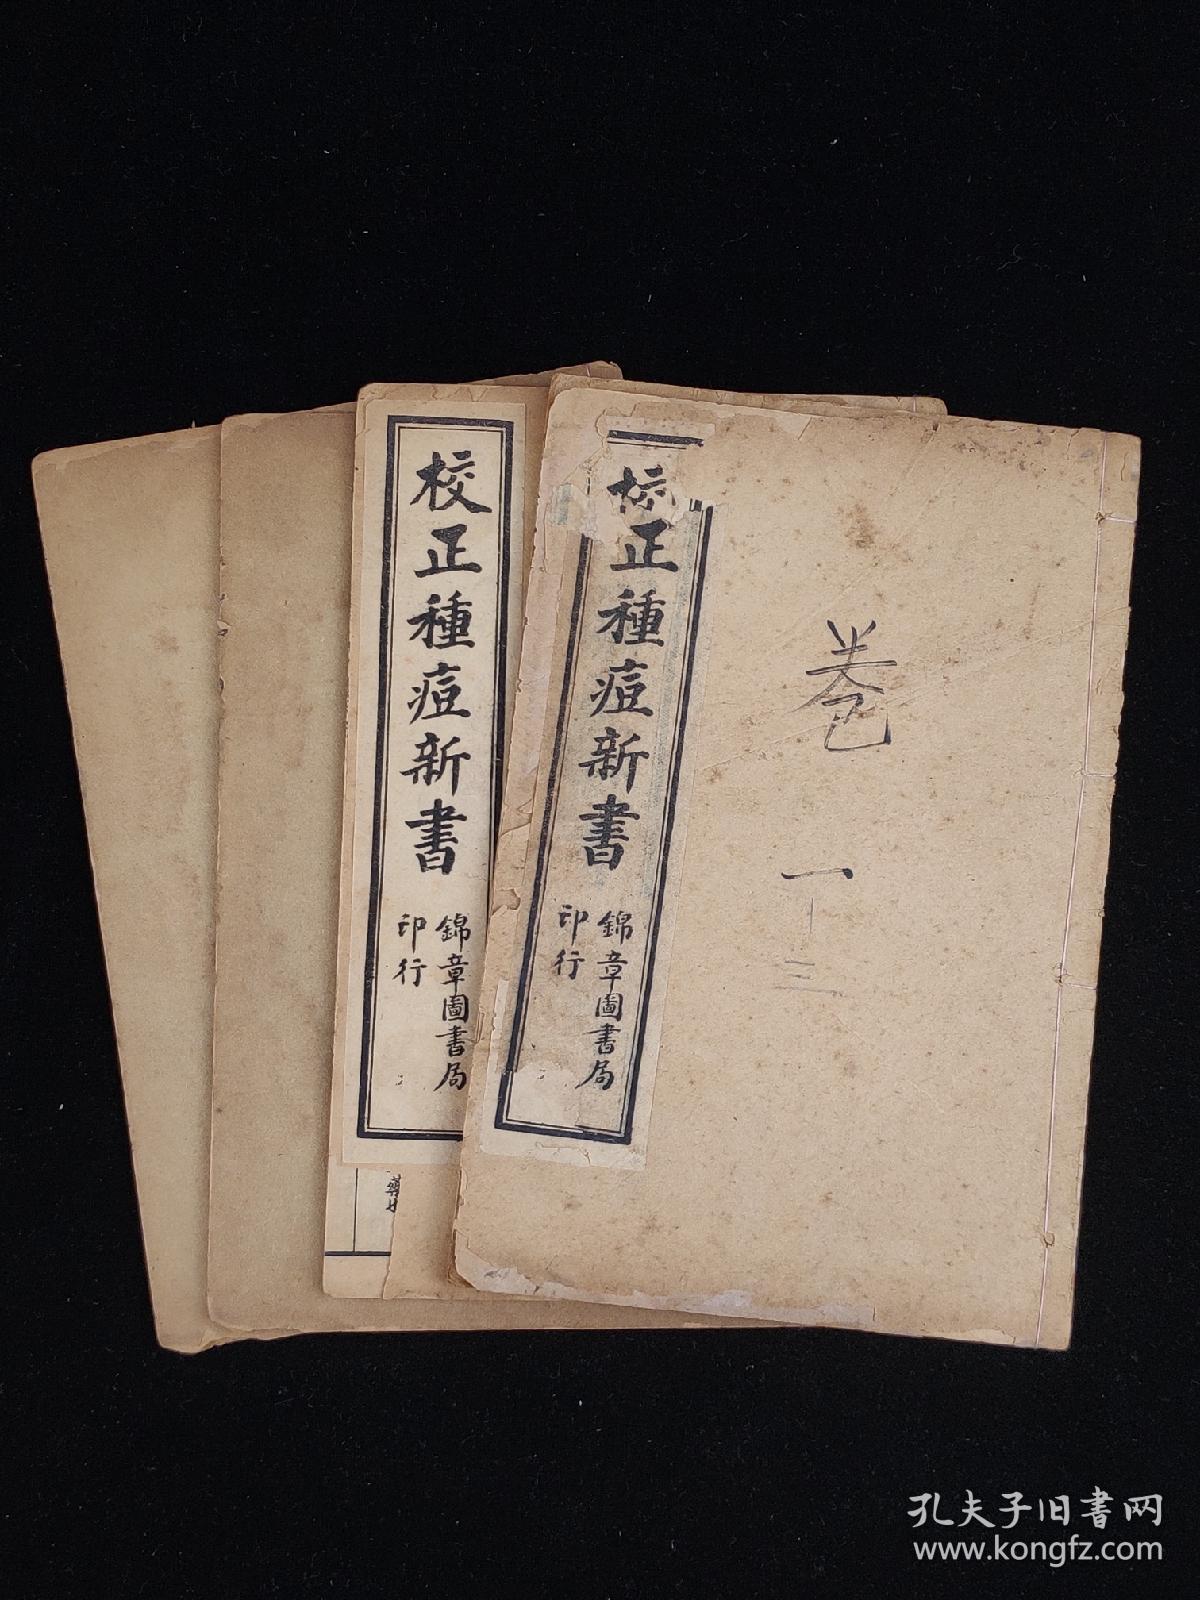 校正種痘新書
錦章圖書局
印行
校正種痘新書
錦章圖書局
印行
卷
一
三
孔夫子旧書网
www.kongfz.com